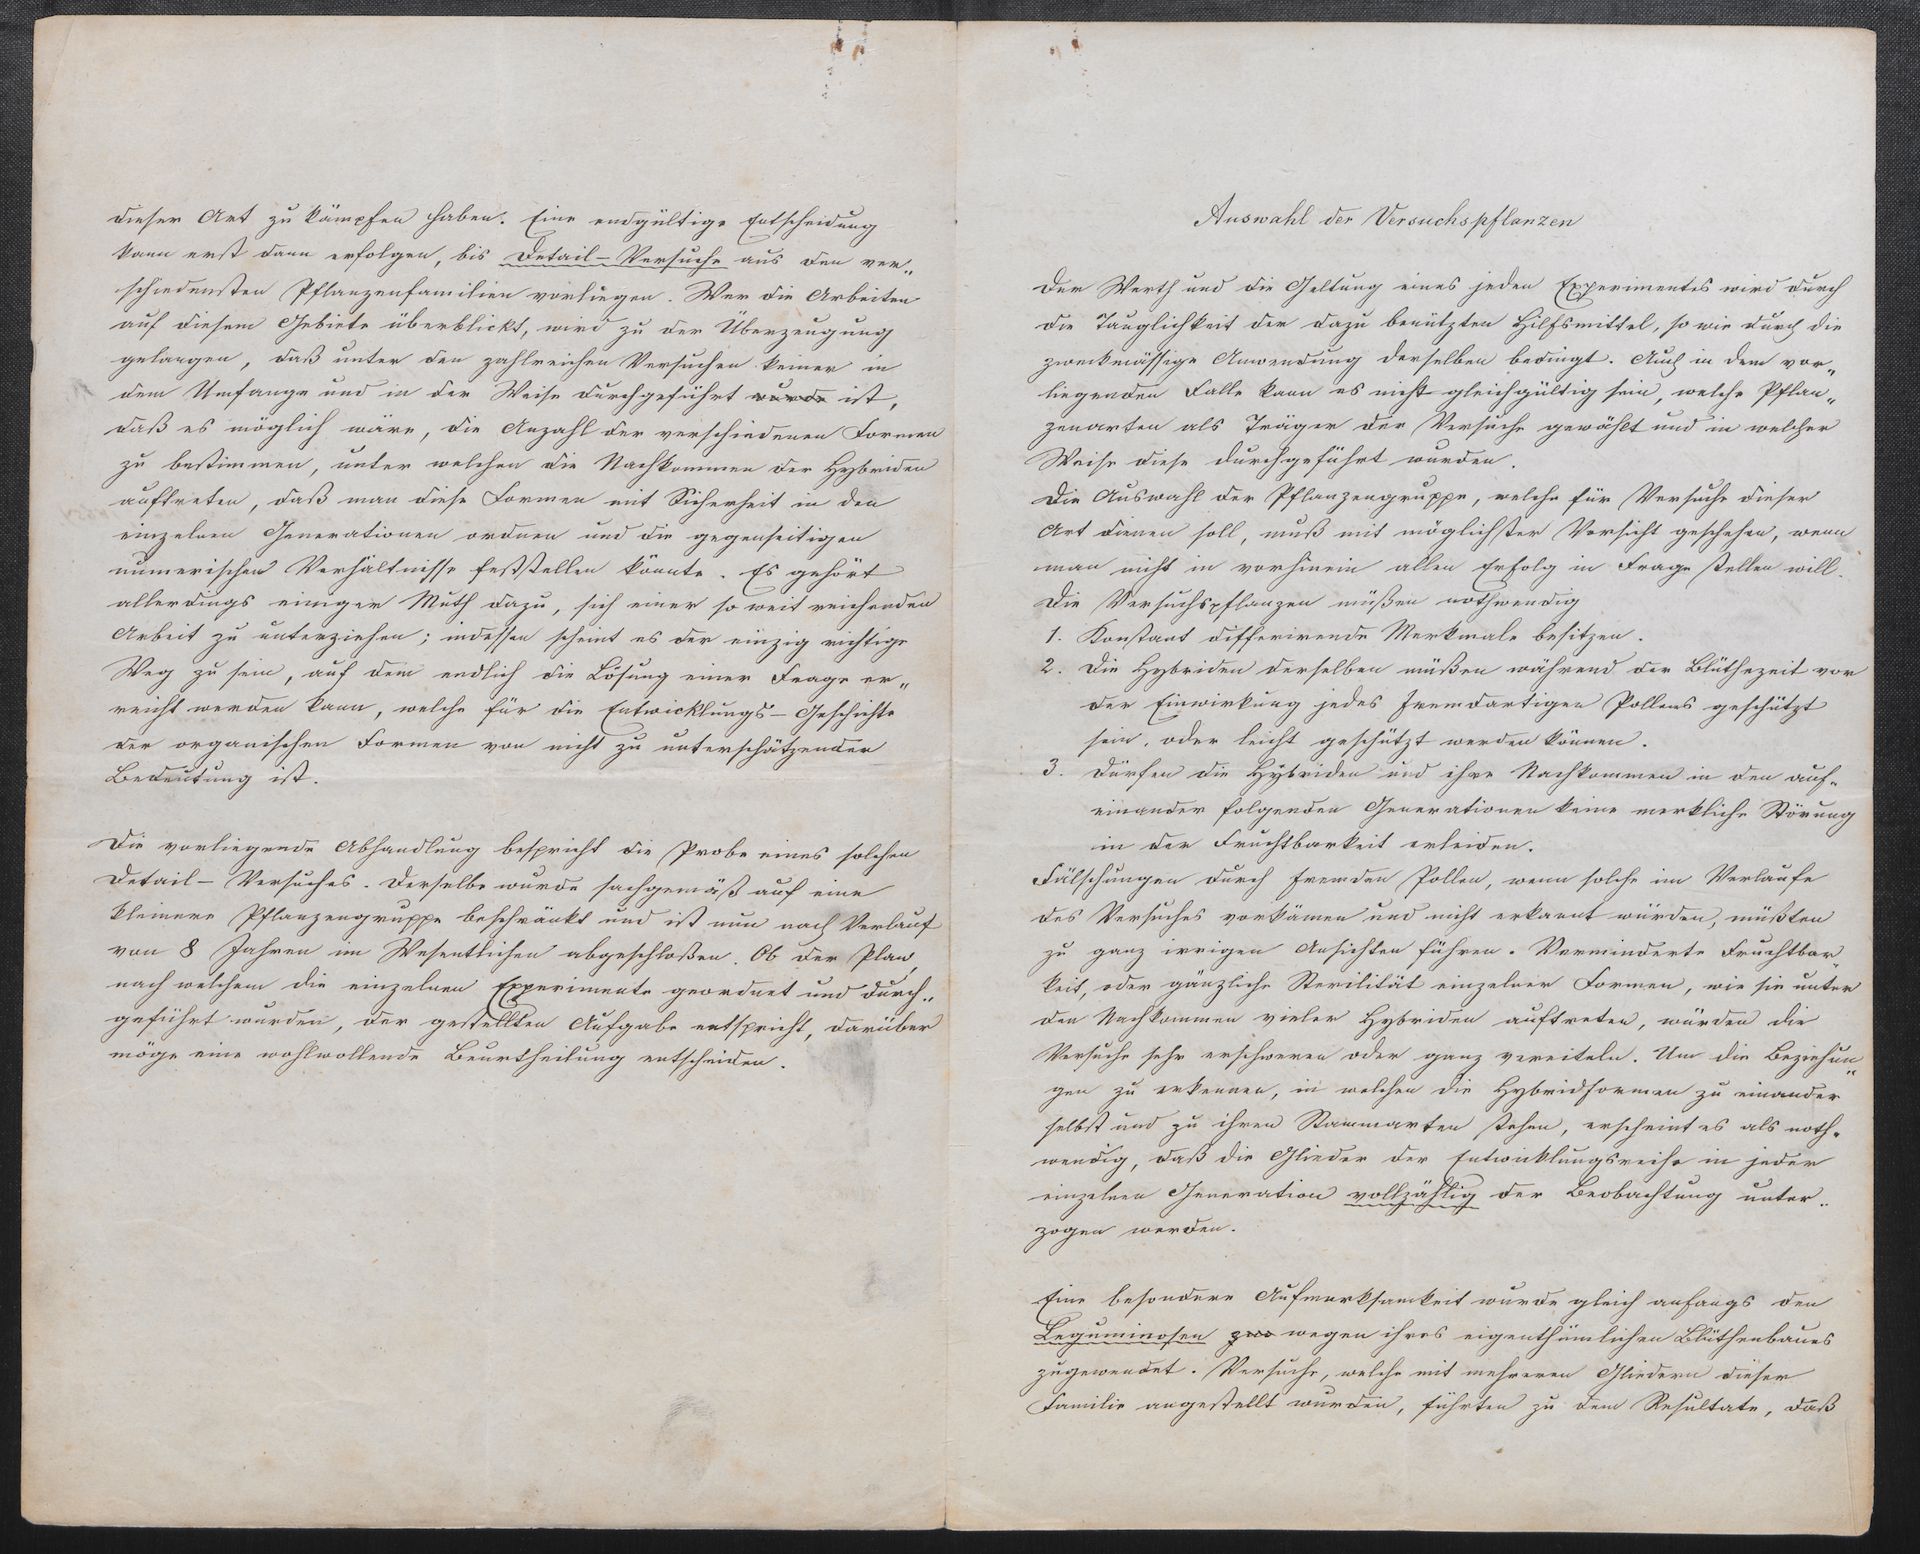 dieser Art zu kämpfen haben. Eine endgültige Entscheidung
kann erst dann erfolgen, bis Detail-Versuche aus den ver„
schiedensten Pflanzenfamilien vorliegen. Wer die Arbeiten
auf diesem Gebiete überblickt, wird zu der Überzeugung
gelangen, daß unter den zahlreichen Versuchen keiner in
dem Umfange und in der Weise durchgeführt wurde ist,
daß es möglich wäre, die Anzahl der verschiedenen Formen
zu bestimmen, unter welchen die Nachkommen der Hybriden
auftreten, daß man diese Formen mit Sicherheit in den
einzelnen Generationen ordnen und die gegenseitigen
numerischen Verhältnisse feststellen könnte. Es gehört
allerdings einiger Muth dazu, sich einer so weit reichenden
Arbeit zu unterziehen; indessen scheint es der einzig richtige
Weg zu sein, auf dem endlich die Lösung einer Frage er„
reicht werden kann, welche für die Entwicklungs-Geschichte
der organischen Formen von nicht zu unterschätzender
Bedeutung ist.
Die vorliegende Abhandlung bespricht die Probe eines solchen
Detail-Versuches. Derselbe wurde sachgemäß auf eine
kleinere Pflanzengruppe beschränkt und ist nun nach Verlauf
von 8 Jahren im Wesentlichen abgeschloßen. Ob der Plan,
nach welchem die einzelnen Experimente geordnet und durch„
geführt wurden, der gestellten Aufgabe entspricht, darüber
möge eine wohlwollende Beurtheilung entscheiden.
Auswahl der Versuchspflanzen
Der Werth und die Geltung eines jeden Experimentes wird durch
die Tauglichkeit der dazu benützten Hilfsmittel, so wie durch die
zweckmässige Anwendung derselben bedingt. Auch in dem vor„
liegenden Falle kann es nicht gleichgültig sein, welche Pflan„
zenarten als Träger der Versuche gewählt und in welcher
Weise diese durchgeführt wurden.
Die Auswahl der Pflanzengruppe, welche für Versuche dieser
Art dienen soll, muß mit möglichster Vorsicht geschehen, wenn
man nicht in vorhinein allen Erfolg in Frage stellen will.
Die Versuchspflanzen müßen nothwendig
1. Konstant differirende Merkmale besitzen.
2. Die Hybriden derselben müßen während der Blüthezeit vor
der Einwirkung jedes fremdartigen Pollens geschützt
sein, oder leicht geschützt werden können.
3. Dürfen die Hybriden und ihre Nachkommen in den auf„
einander folgenden Generationen keine merkliche Störung
in der Fruchtbarkeit erleiden.
Fälschungen durch fremden Pollen, wenn solche im Verlaufe
des Versuches vorkämen und nicht erkannt würden, müßten
zu ganz irrigen Ansichten führen. Verminderte Fruchtbar„
keit, oder gänzliche Sterilität einzelner Formen, wie sie unter
den Nachkommen vieler Hybriden auftreten, würden die
Versuche sehr erschweren oder ganz vereiteln. Um die Beziehun„
gen zu erkennen, in welchen die Hybridformen zu einander
selbst und zu ihren Stammarten stehen, erscheint es als noth„
wendig, daß die Glieder der Entwicklungsreihe in jeder
einzelnen Generation vollzählig der Beobachtung unter„
zogen werden.
Eine besondere Aufmerksamkeit wurde gleich anfangs den
Leguminosen wegen ihres eigenthümlichen Blüthenbaues
zugewendet. Versuche, welche mit mehreren Gliedern dieser
Familie angestellt wurden, führten zu dem Resultate, daß